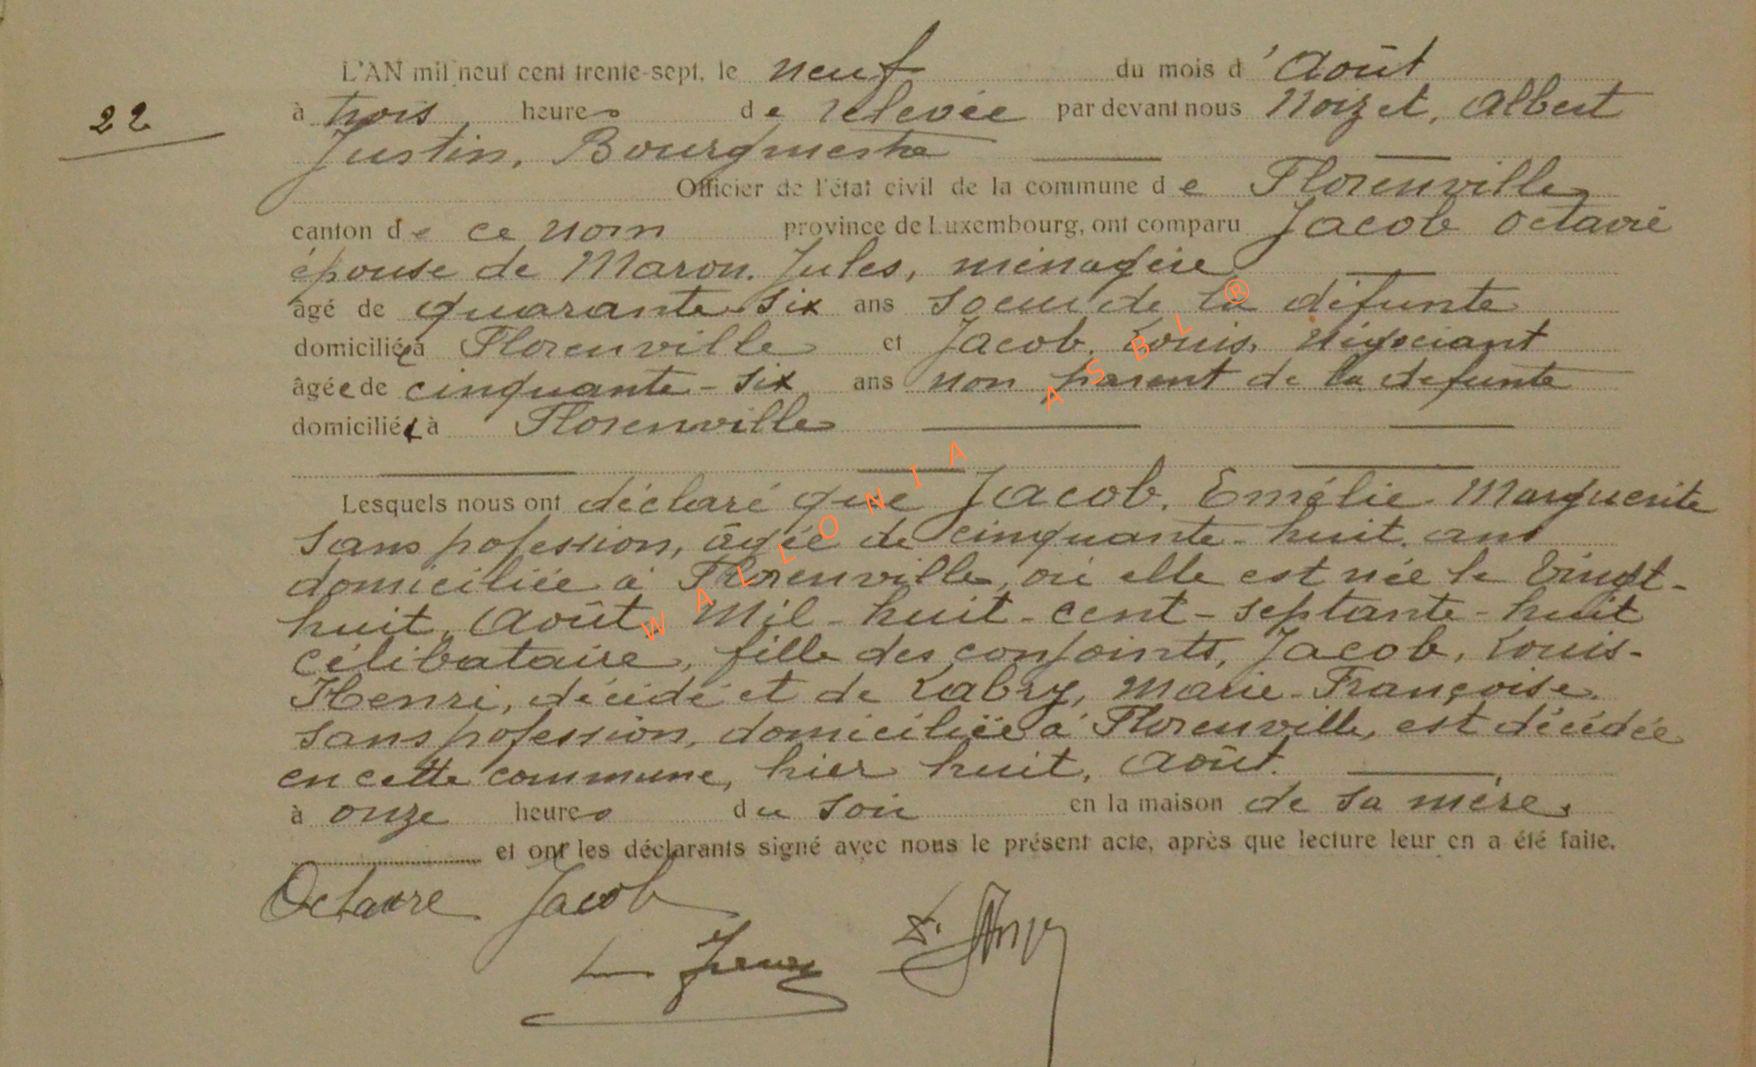 22
L'AN mil neuf cent trente-sept, le neuf du mois d'Août
à trois heures de relevée par devant nous Noizet, Albert
Justin, Bourgmestre
Officier de l'état civil de la commune de Florenville
canton de ce nom province de Luxembourg, ont comparu Jacob Octavie
épouse de Maron Jules, ménagère
âgé de quarante-six ans soeur de la défunte
domiciliée à Florenville et Jacob, Louis, négociant
âgée de cinquante-six ans non parent de la défunte
domicilié à Florenville
Lesquels nous ont déclaré que Jacob, Emélie Marguerite
sans pofession, âgée de cinquante-huit ans
domiciliée à Florenville, où elle est née le vingt-
huit, Août Mil-huit-cent-septante-huit
célibataire, fille des conjoints, Jacob, Louis-
Henri, décédé et de Labry, Marie-Françoise.
sans pofession, domiciliée à Florenville, est décédée
en cette commune, hier huit, Août.
à onze heures du soir en la maison de sa mère,
et ont les déclarants signé avec nous le présent acte, après que lecture leur en a été faite.
Octavie Jacob
WALLONIA ASBL ®